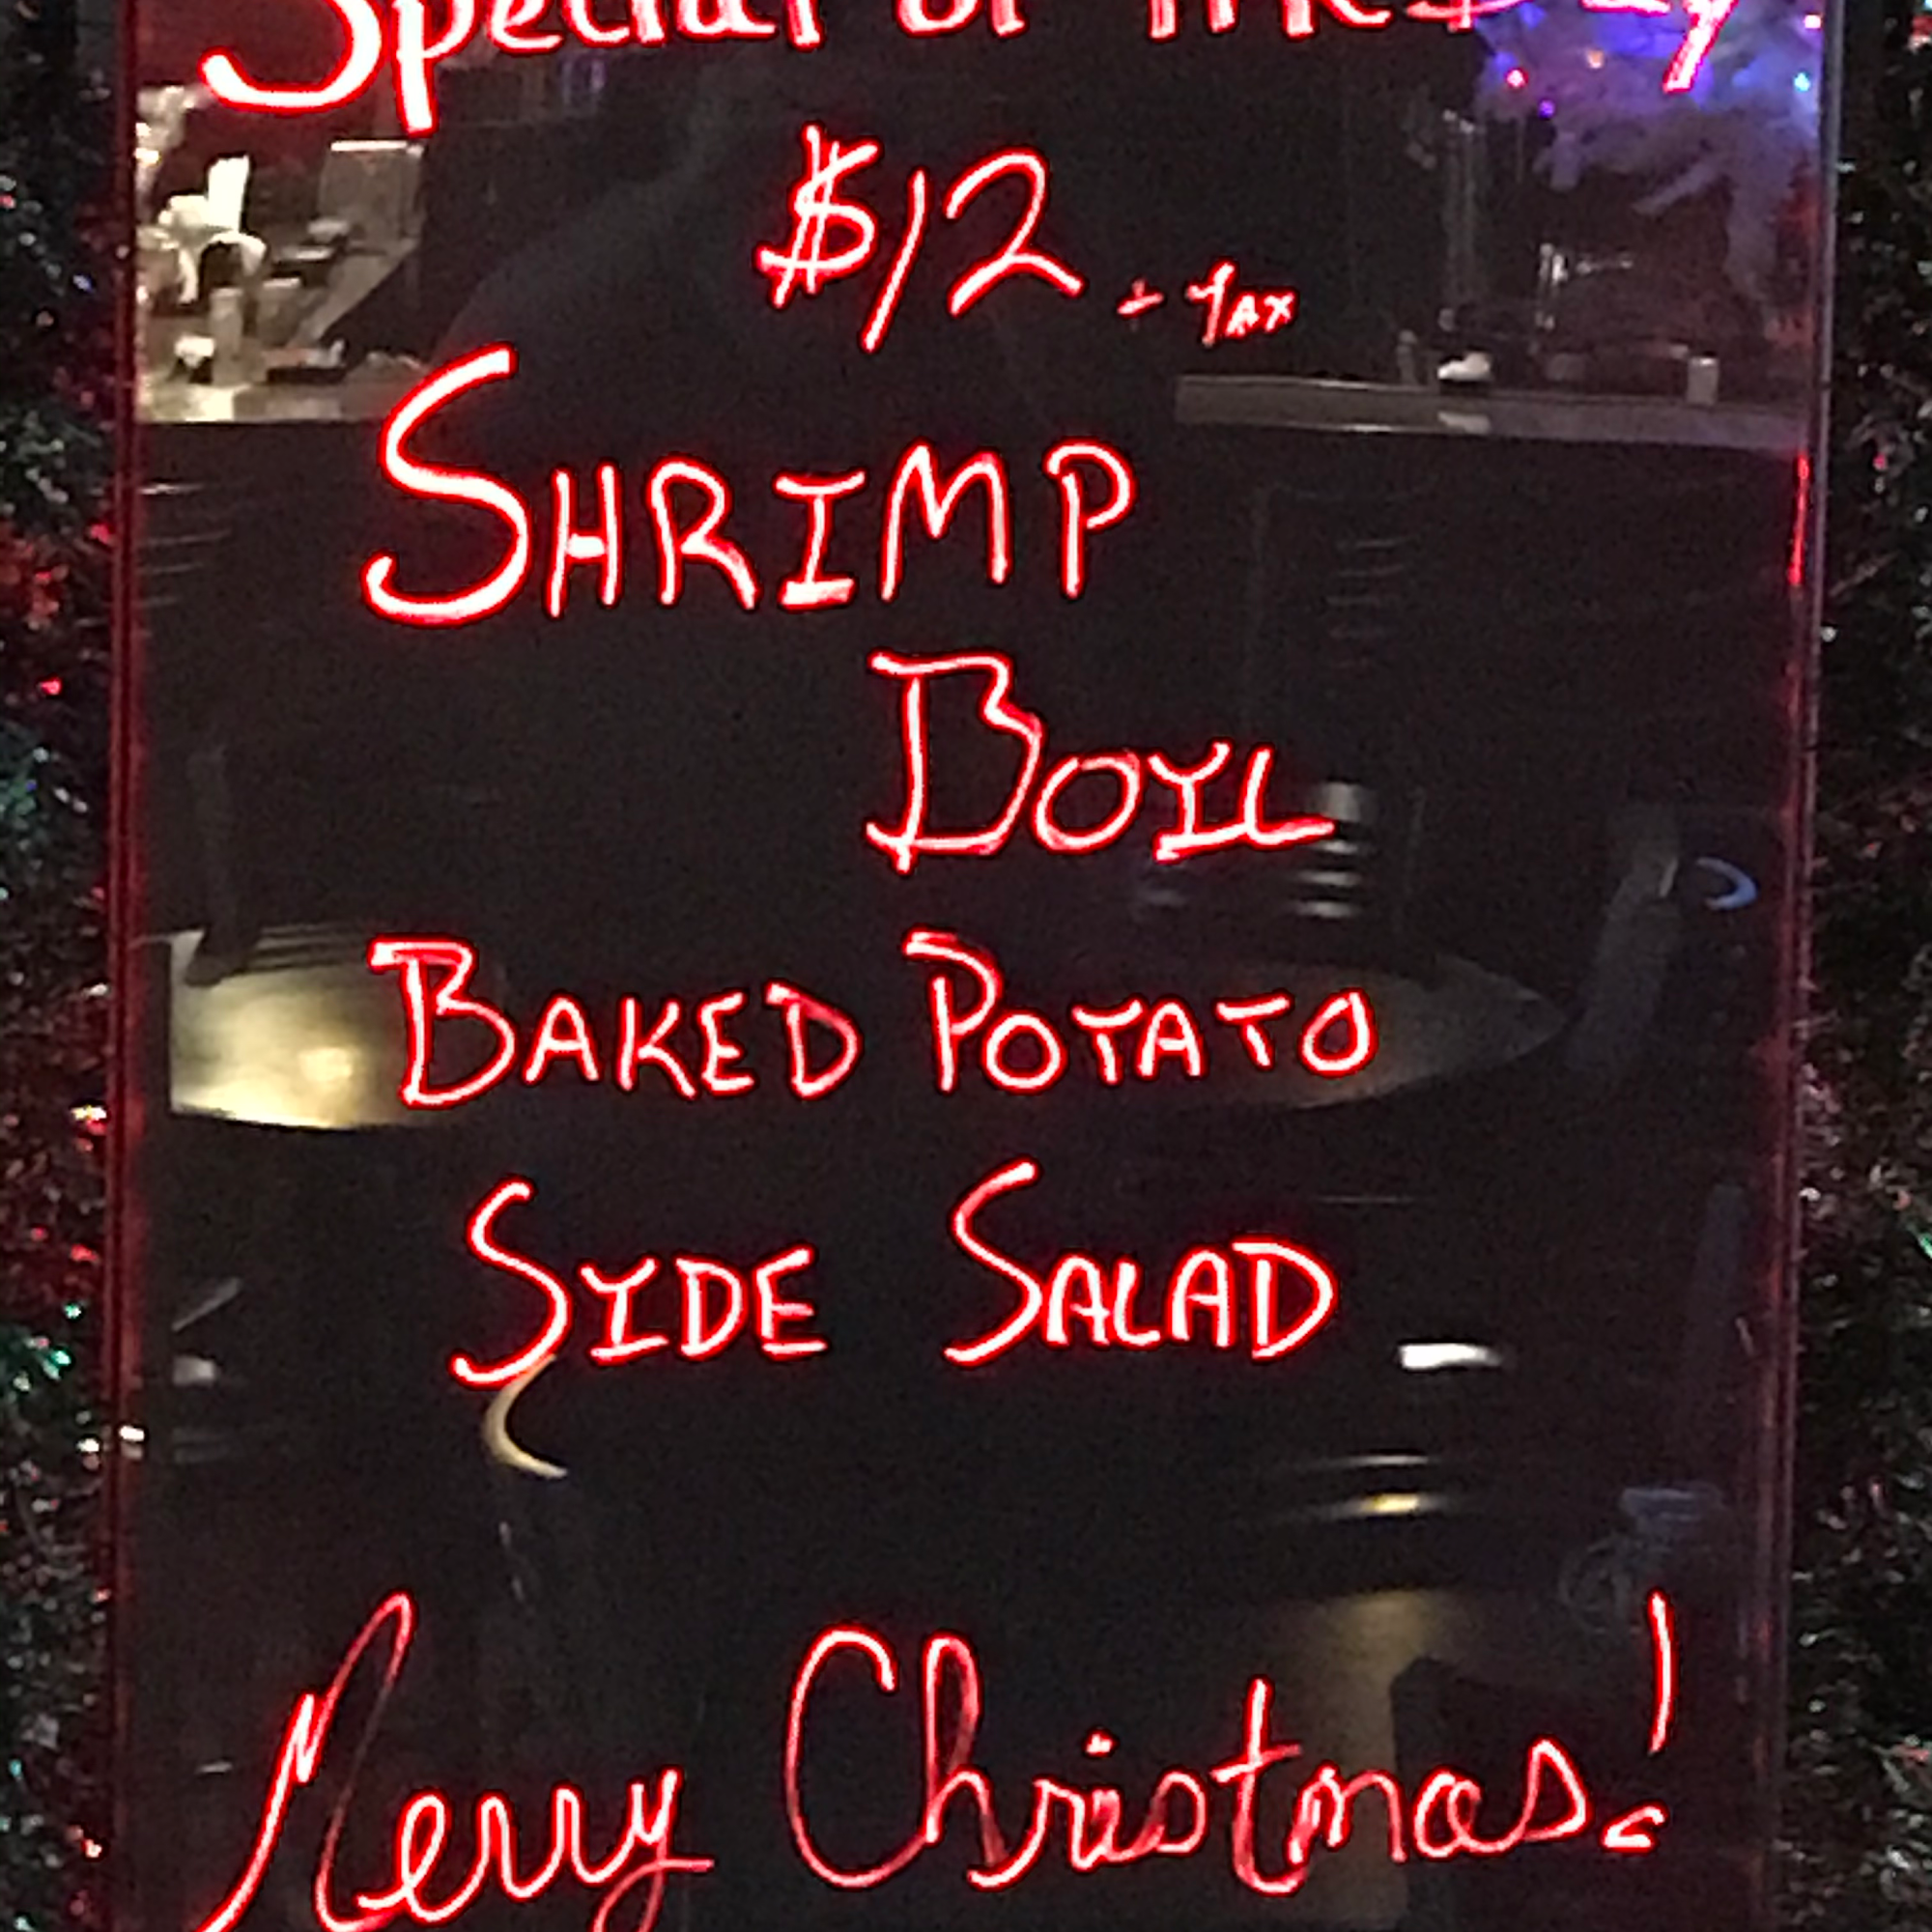 Special of the Day
$12 + TAX
SHRIMP
BOIL
BAKED POTATO
SIDE SALAD
Merry Christmas!